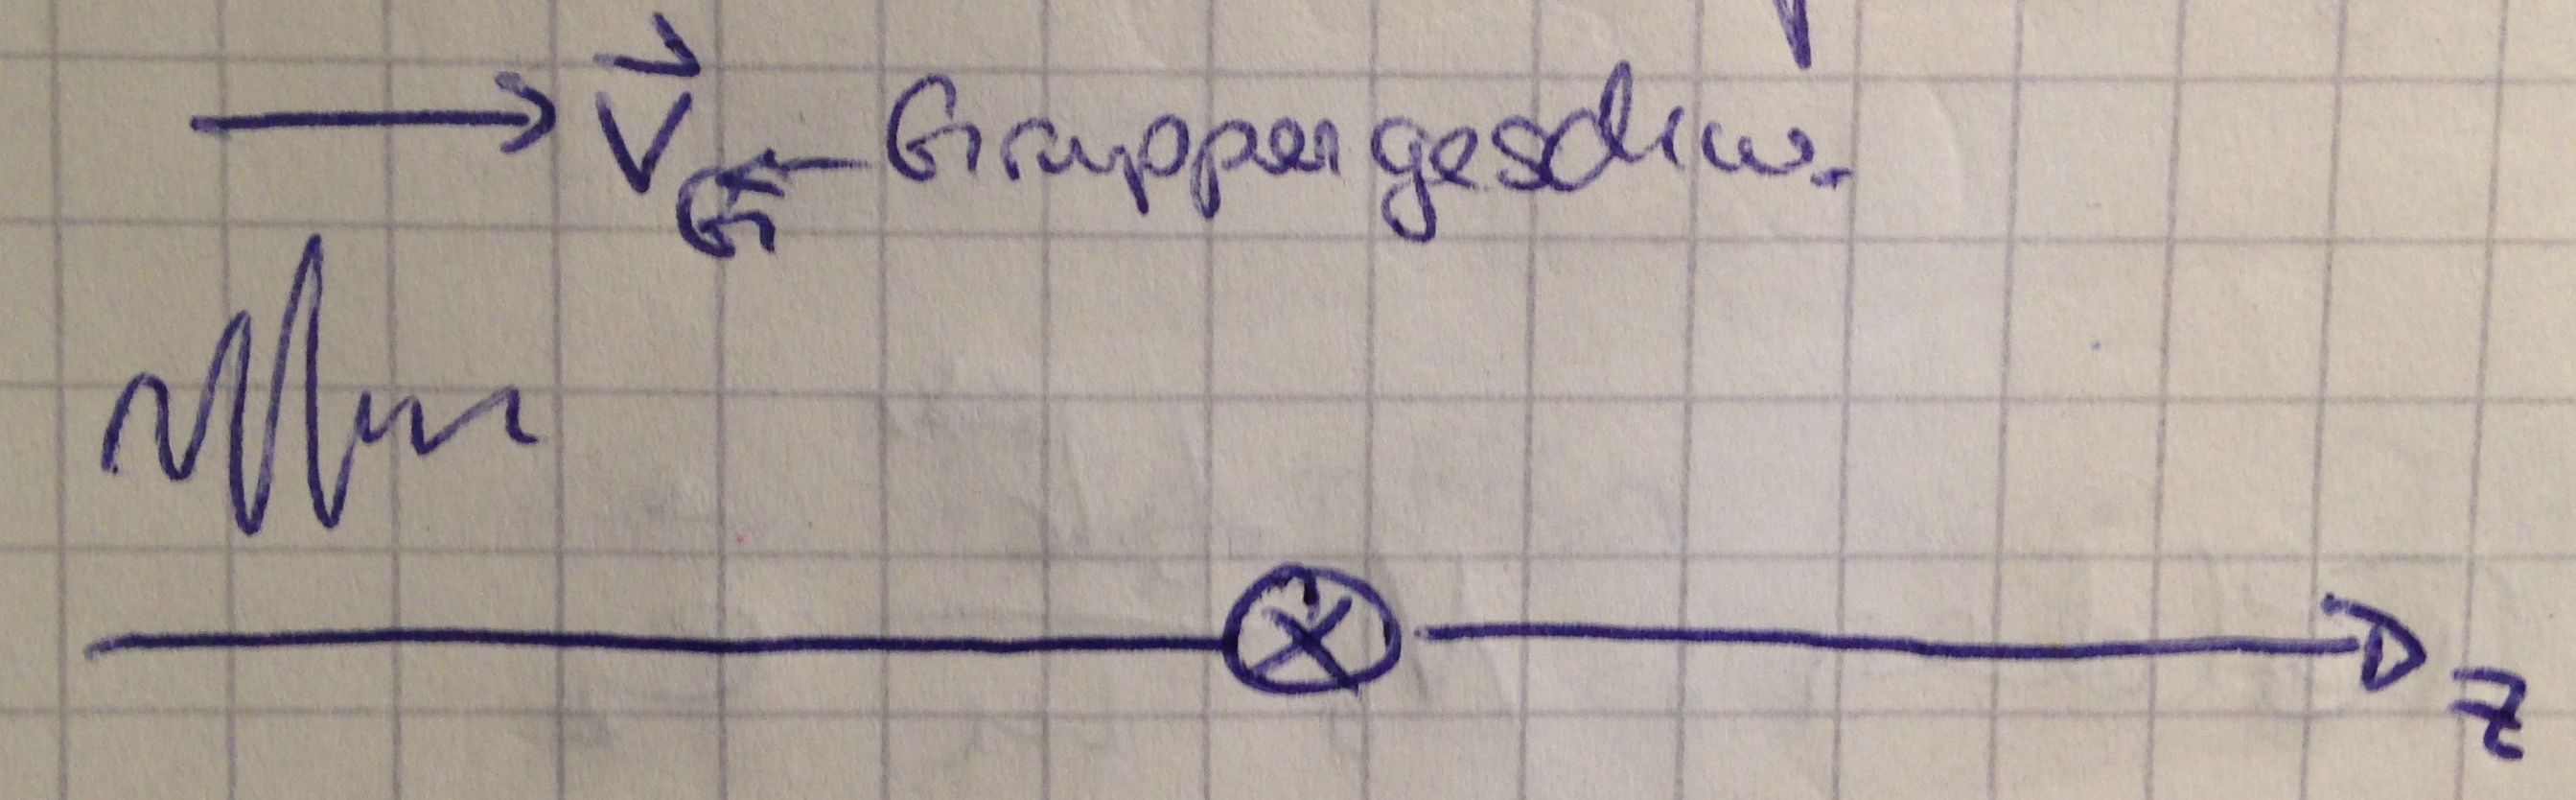 → V⃗_G ← Gruppengeschw.
⊗ z